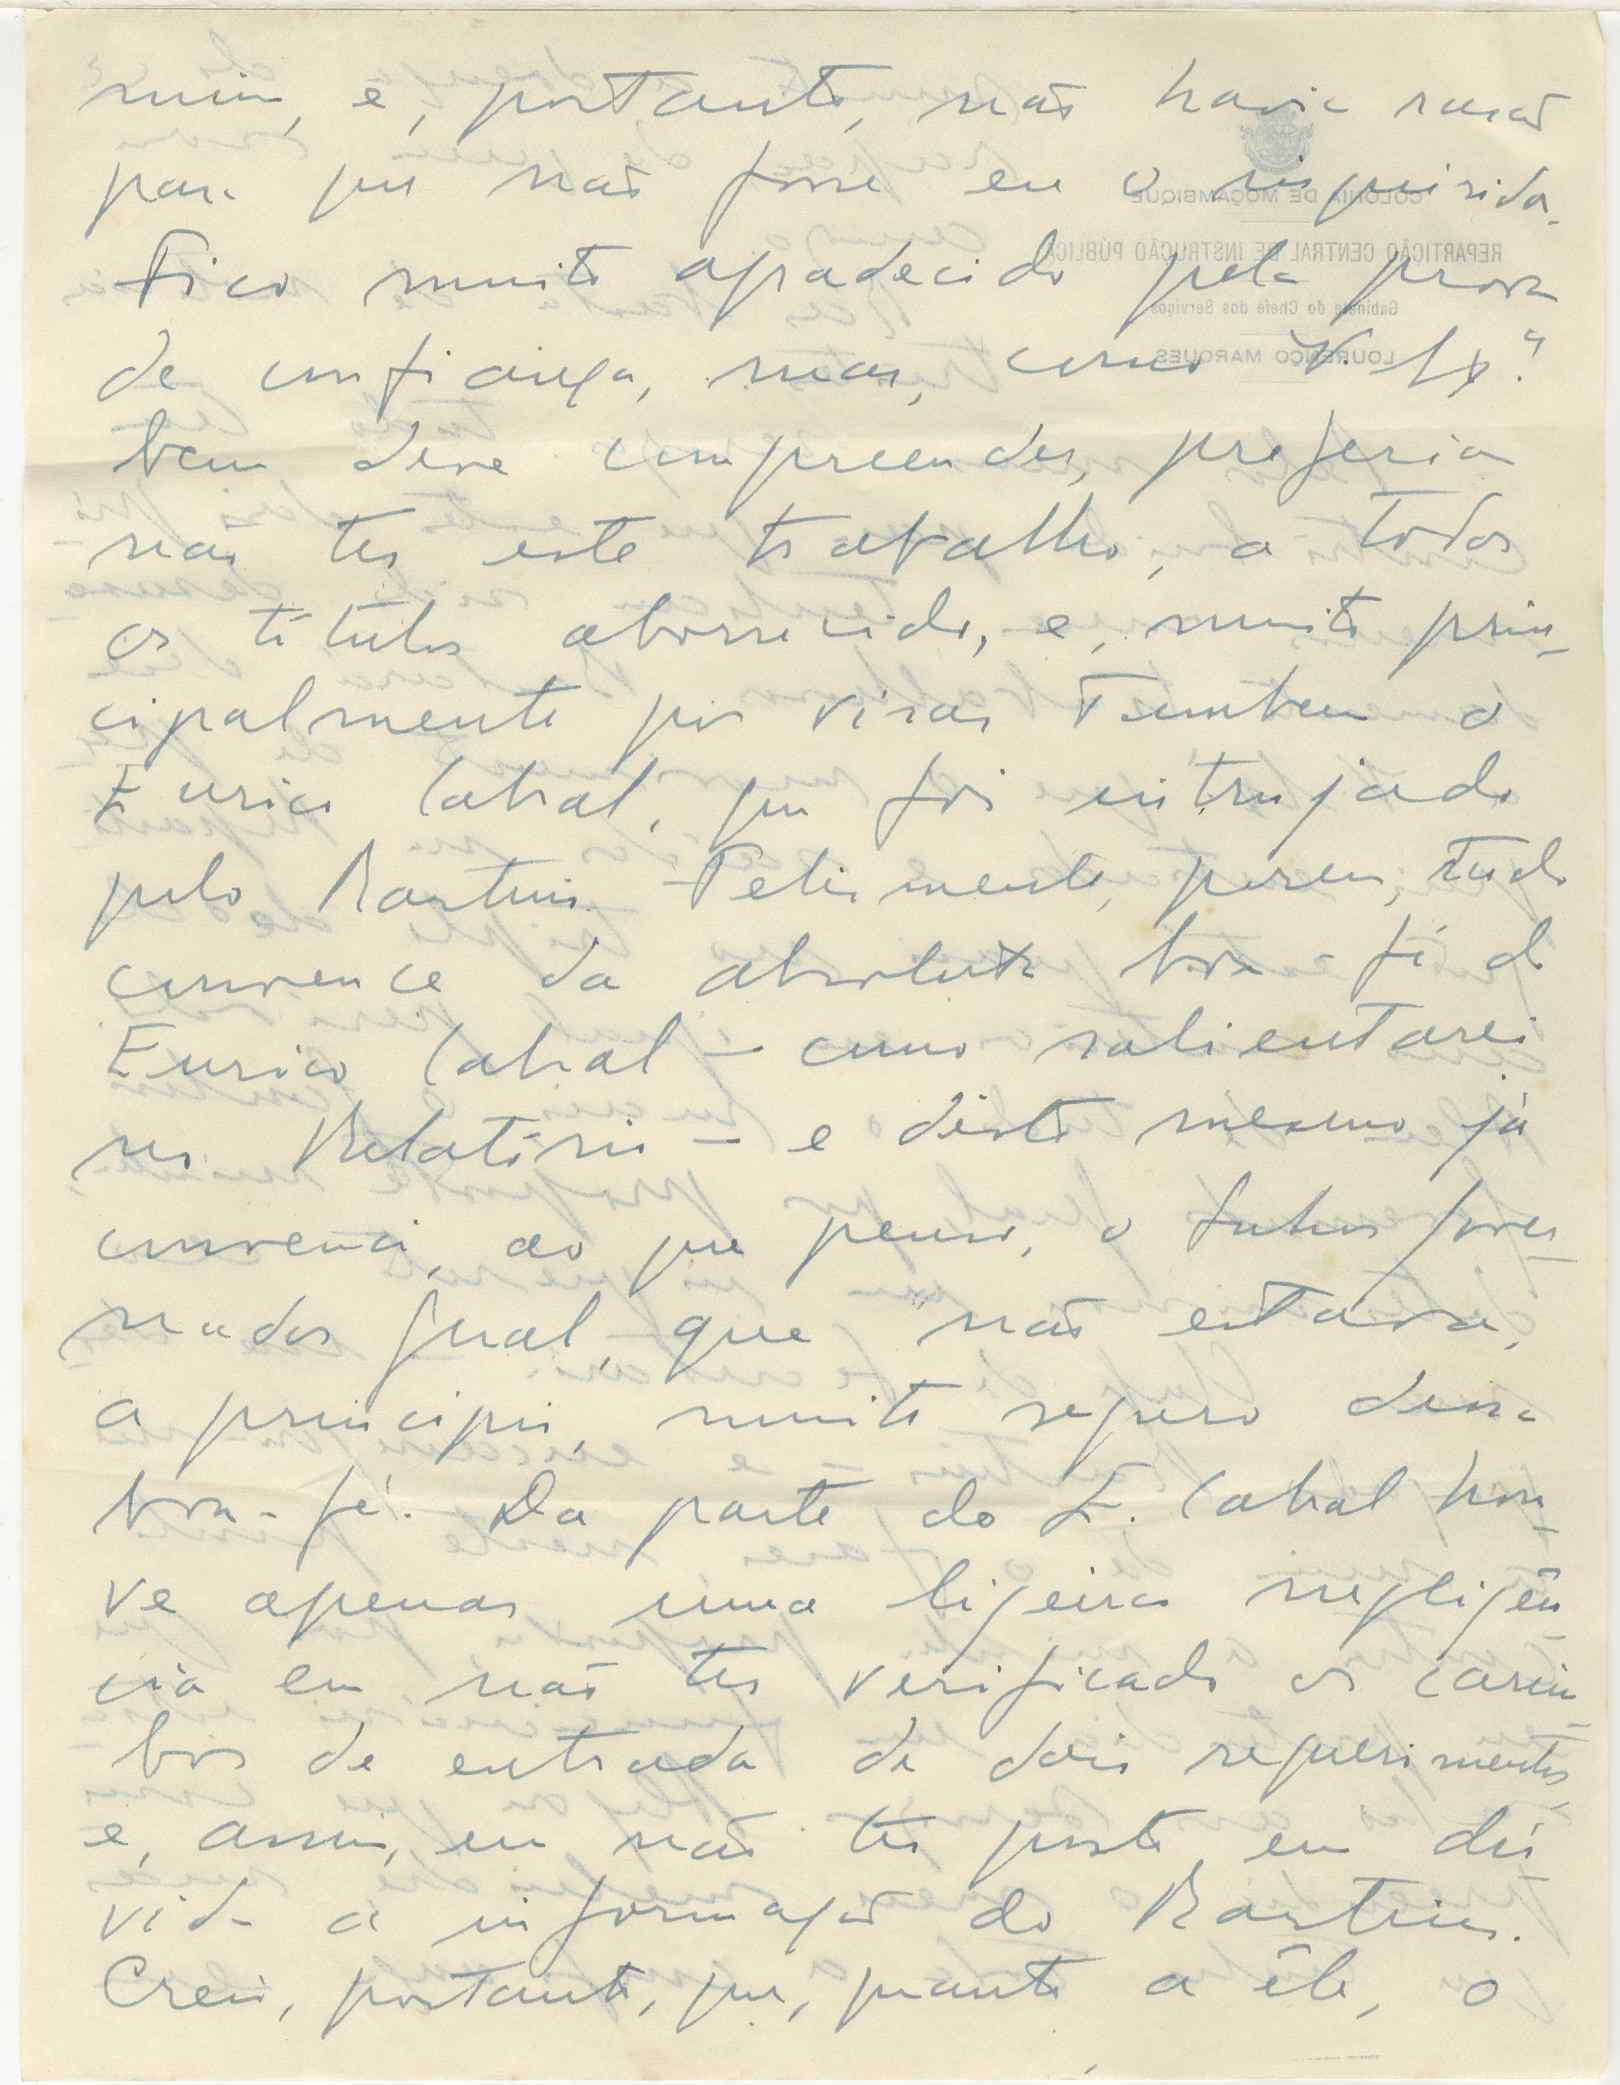 mim, e, portanto, não havia razão
para que não fosse eu o
Fico muito agradecido pela prova
de confiança, mas, como V. Ex.ª
bem deve compreender, preferia
não ter este trabalho, a todos
os títulos aborrecido, e, muito prin-
cipalmente por visar tambem o
Eurico Cabral, que foi intrujado
pelo Martins. Felismente, porem, tudo
convence da absoluta boa-fé do
Eurico Cabral — como salientarei
no Relatório — e disto mesmo já
convenci, ao que penso, o futuro Gover-
nador Geral, que não estava,
a principio, muito seguro dessa
boa-fé. Da parte do E. Cabral hou-
ve apenas uma ligeira negligên-
cia em não ter verificado os carim-
bos de entrada de dois requerimentos,
e, assim, em não ter posto em dú-
vida a informação do Martins.
Creio, portanto, que, quanto a êle, o
COLONIA DE MOÇAMBIQUE
REPARTIÇÃO CENTRAL DE INSTRUÇÃO PÚBLICA
Gabinete do Chefe dos Serviços
LOURENÇO MARQUES